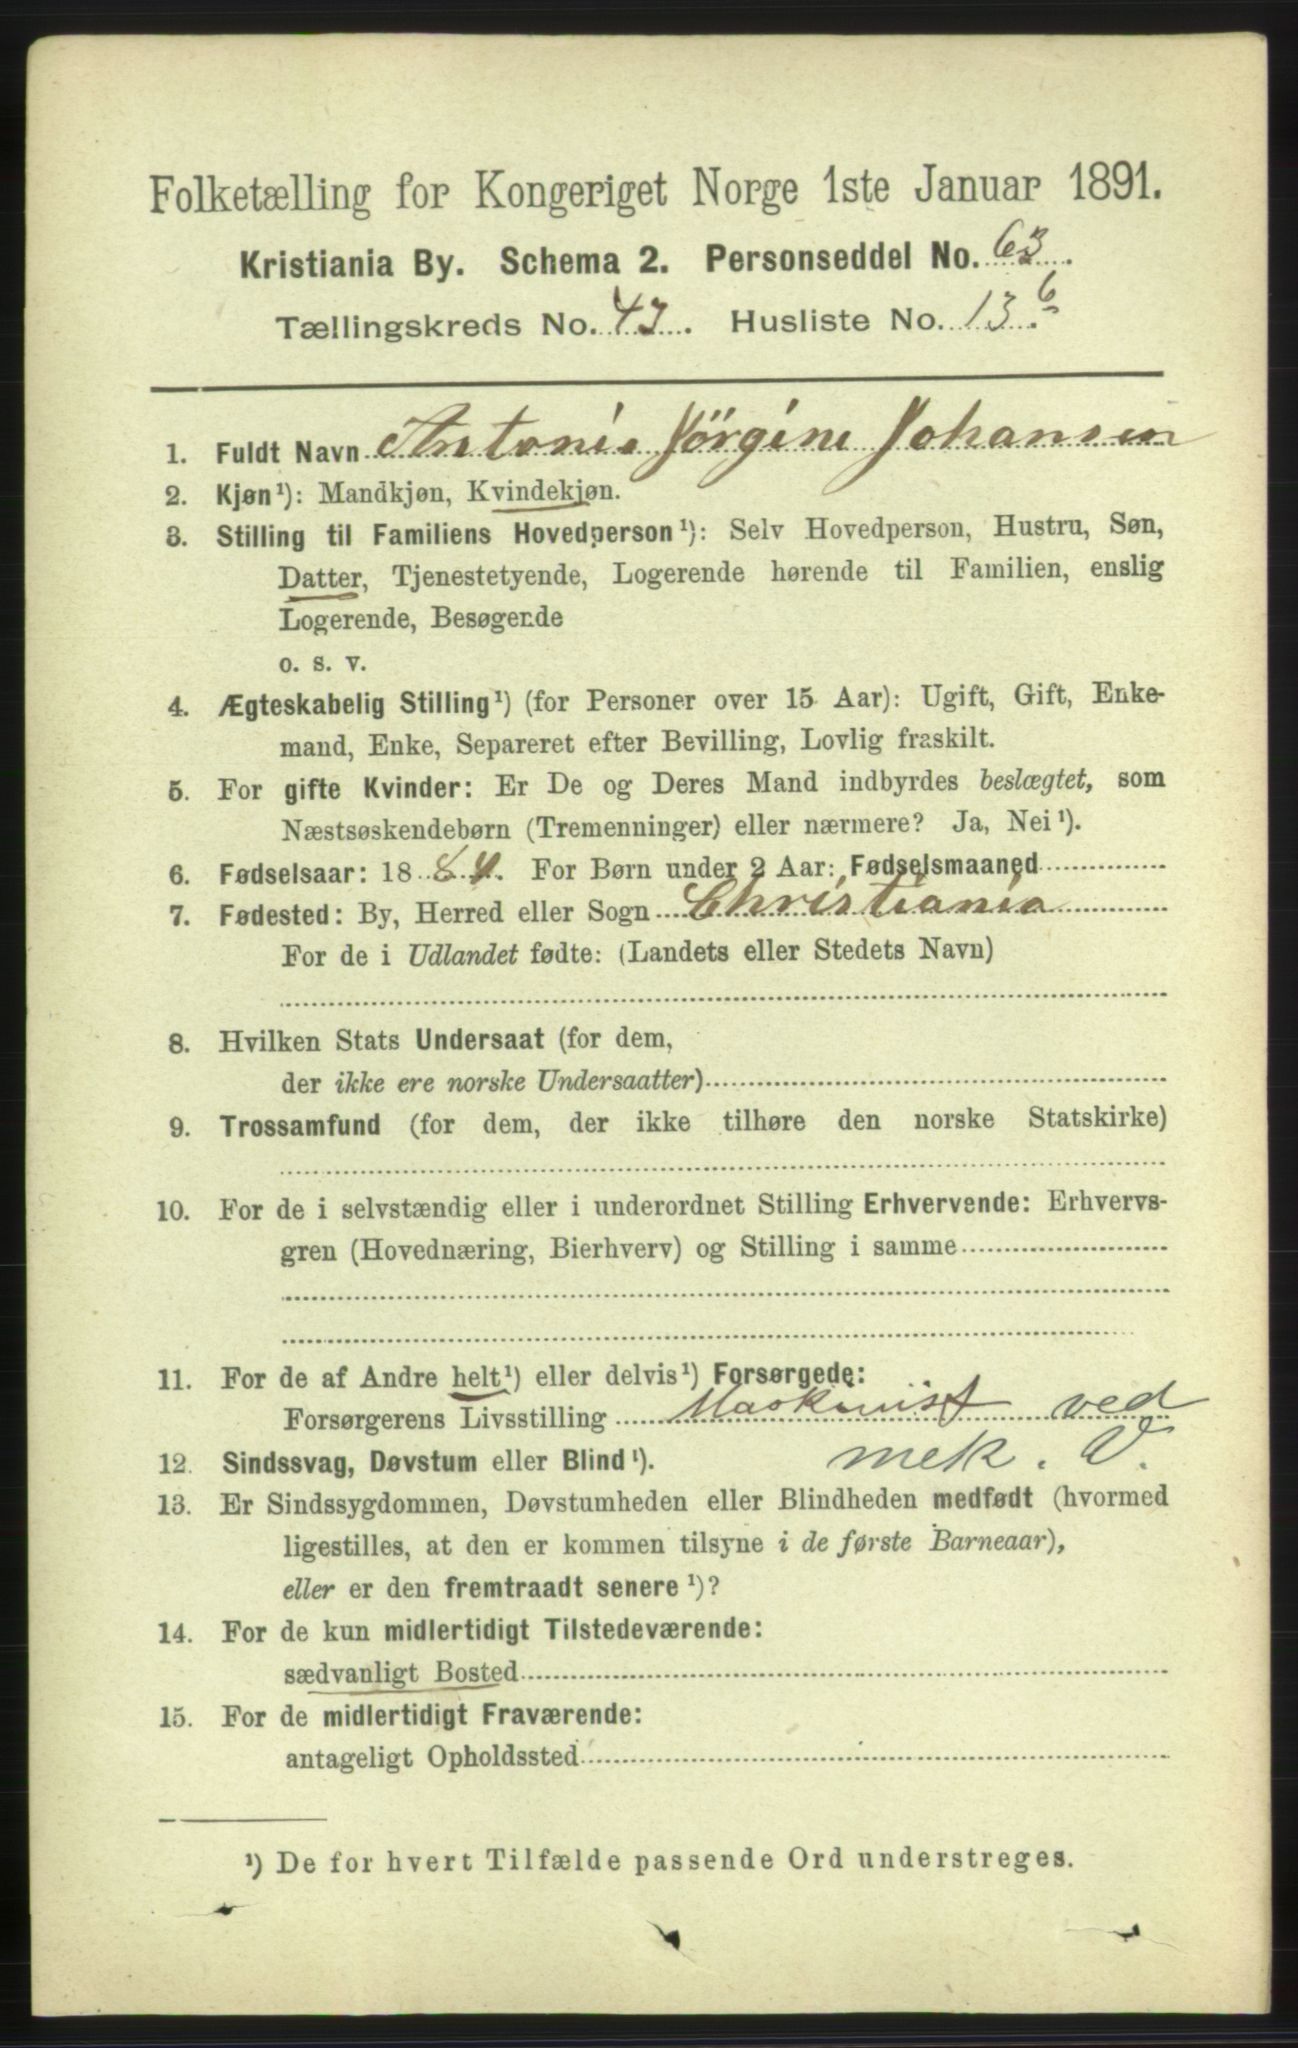 Folketælling for Kongeriget Norge 1ste Januar 1891.
Kristiania By. Schema 2. Personseddel No. 63.
Tællingskreds No. 43. Husliste No. 13 6.
1. Fuldt Navn Antonie Jörgine Johansen
2. Kjøn¹): Mandkjøn, Kvindekjøn.
3. Stilling til Familiens Hovedperson¹): Selv Hovedperson, Hustru, Søn,
Datter, Tjenestetyende, Logerende hørende til Familien, enslig
Logerende, Besøgende
o. s. v.
4. Ægteskabelig Stilling¹) (for Personer over 15 Aar): Ugift, Gift, Enke-
mand, Enke, Separeret efter Bevilling, Lovlig fraskilt.
5. For gifte Kvinder: Er De og Deres Mand indbyrdes beslægtet, som
Næstsøskendebørn (Tremenninger) eller nærmere? Ja, Nei¹).
6. Fødselsaar: 1884. For Børn under 2 Aar: Fødselsmaaned
7. Fødested: By, Herred eller Sogn Christiania
For de i Udlandet fødte: (Landets eller Stedets Navn)
8. Hvilken Stats Undersaat (for dem,
der ikke ere norske Undersaatter)
9. Trossamfund (for dem, der ikke tilhøre den norske Statskirke)
10. For de i selvstændig eller i underordnet Stilling Erhvervende: Erhvervs-
gren (Hovednæring, Bierhverv) og Stilling i samme
11. For de af Andre helt¹) eller delvis¹) Forsørgede:
Forsørgerens Livsstilling Maskinist ved
12. Sindssvag, Døvstum eller Blind¹). mek. V.
13. Er Sindssygdommen, Døvstumheden eller Blindheden medfødt (hvormed
ligestilles, at den er kommen tilsyne i de første Barneaar),
eller er den fremtraadt senere¹)?
14. For de kun midlertidigt Tilstedeværende:
sædvanligt Bosted
15. For de midlertidigt Fraværende:
antageligt Opholdssted
¹) De for hvert Tilfælde passende Ord understreges.